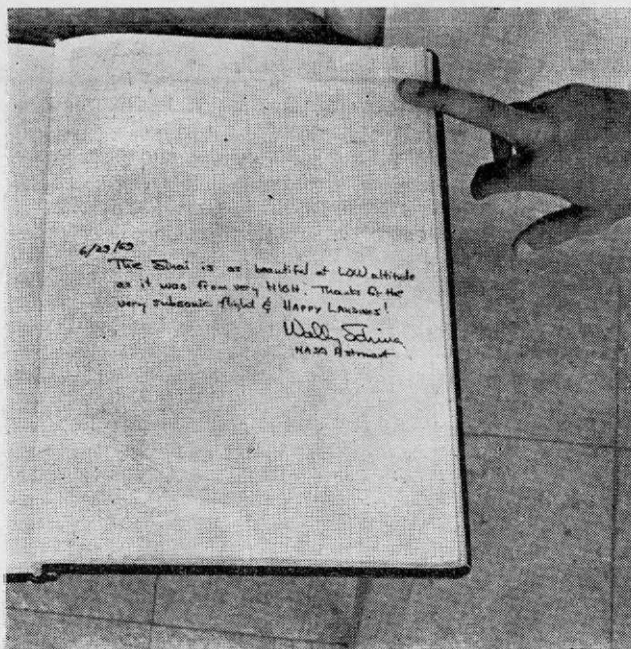 6/29/69
The Sinai is as beautiful at LOW altitude
as it was from very HIGH. Thanks for the
very subsonic flight & HAPPY LANDINGS!
Wally Schirra
NASA Astronaut